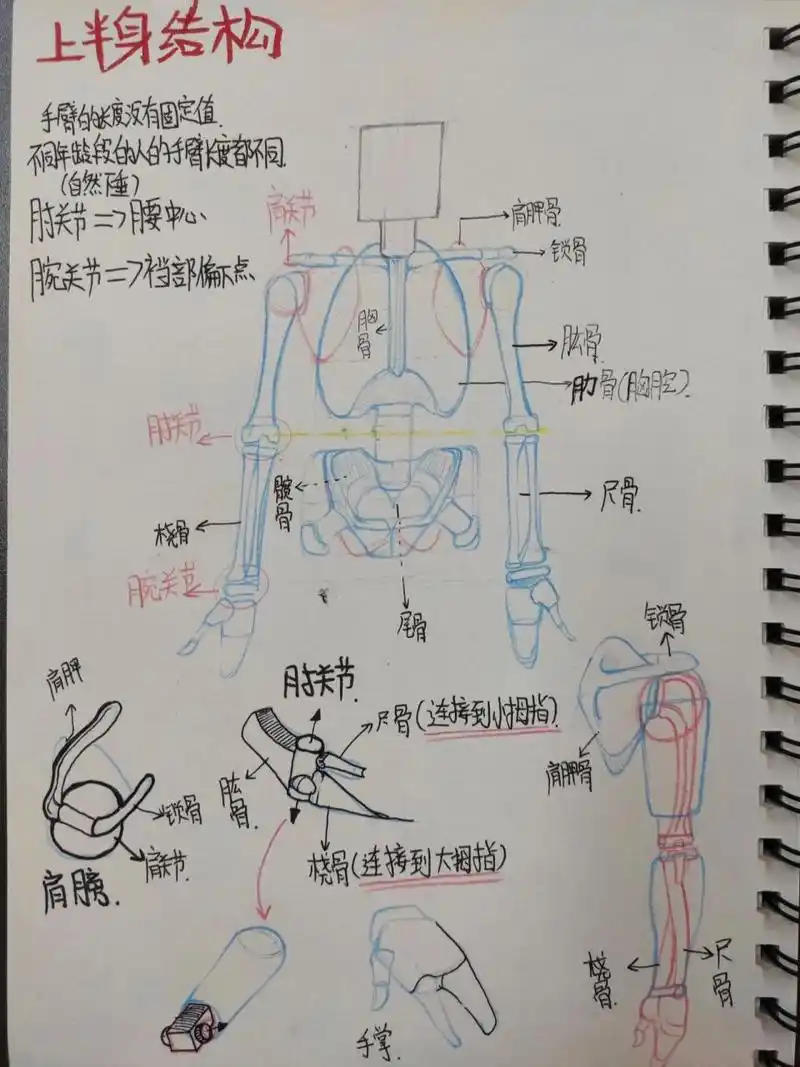 上半身结构
手臂的长度没有固定值.
不同年龄段的人的手臂长度都不同.
(自然下垂)
肘关节=>腰中心
腕关节=>裆部偏下点
肩关节
肩胛骨
锁骨
胸骨
肱骨
肋骨(胸腔).
肘关节
髋骨
尺骨.
桡骨
腕关节
尾骨
肩胛
锁骨
肩关节.
肩膀.
肘关节.
尺骨(连接到小拇指).
肱骨.
桡骨(连接到大拇指)
手掌.
锁骨
肩胛骨
桡骨.
尺骨